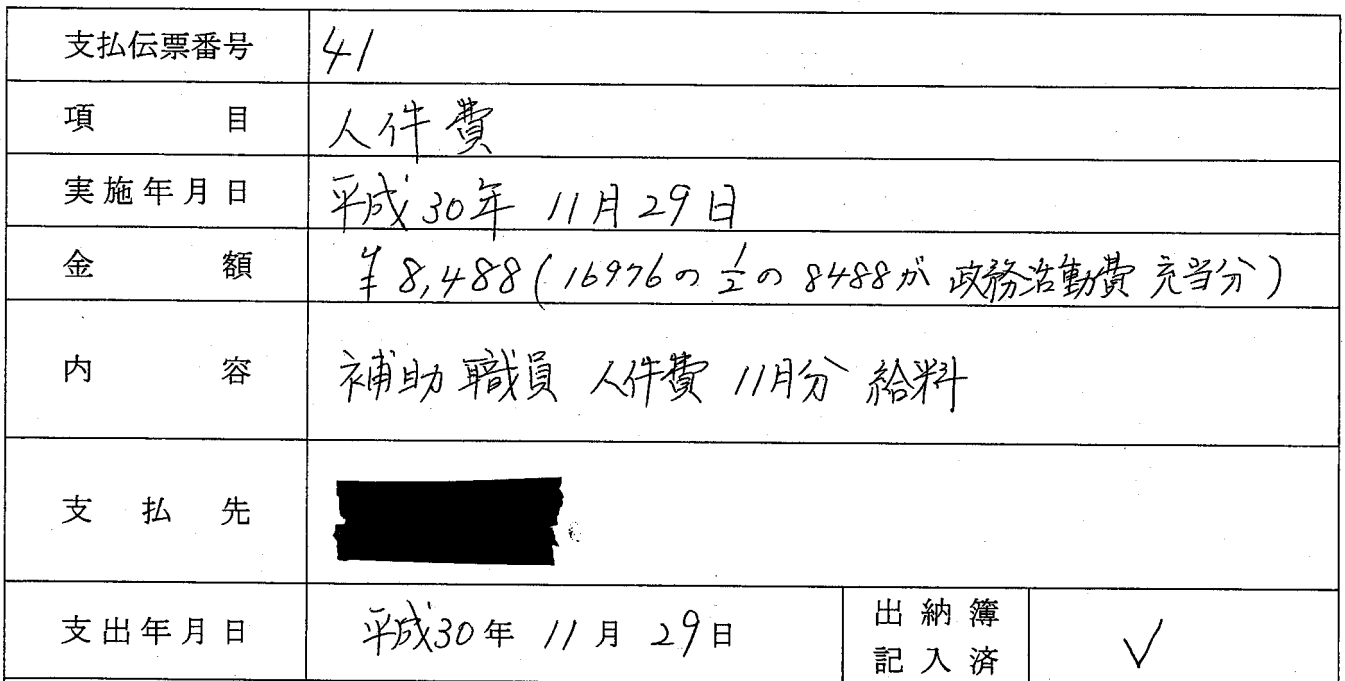 支払伝票番号 41
項目 人件費
実施年月日 平成30年 11月29日
金額 ¥8,488(16976の1/2の8488が 政務活動費 充当分)
内容 補助職員 人件費 11月分 給料
支払先
支出年月日 平成30年 11月 29日 出納簿記入済 ✓